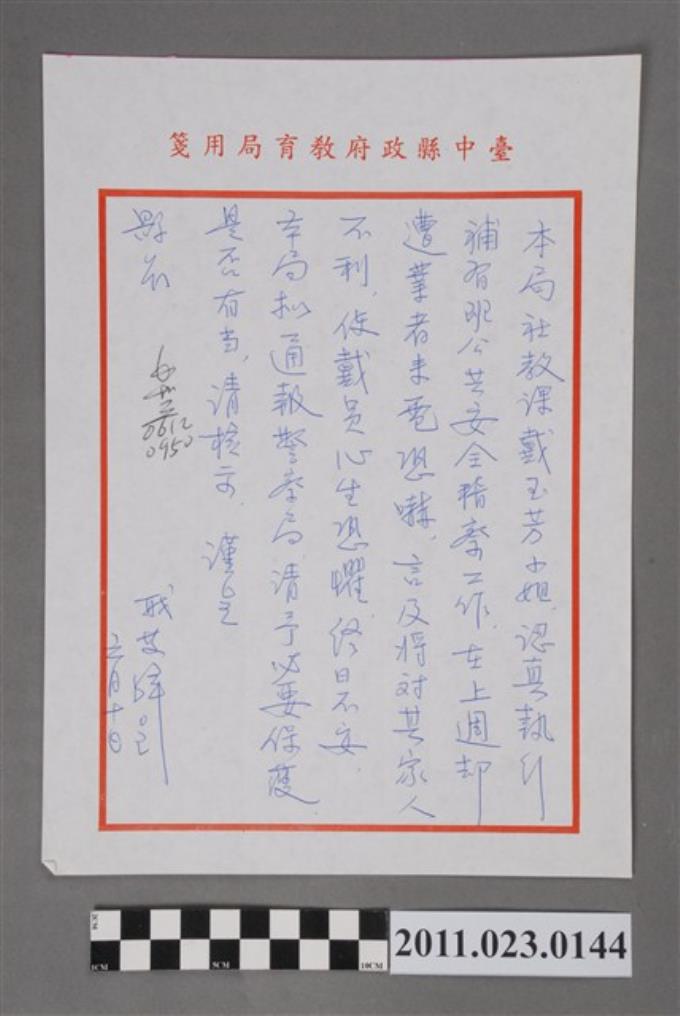 臺中縣政府教育局用箋
本局社教課戴玉芳小姐,認真執行
補習班公共安全稽察工作,在上週却
遭業者來電恐嚇,言及將对其家人
不利,使戴員心生恐懼,終日不安.
本局拟通報警察局,請予必要保護
是否有当,請核示. 謹呈
縣長
0612
0950
六月十日
2CM
1CM
5CM
10CM
2011.023.0144